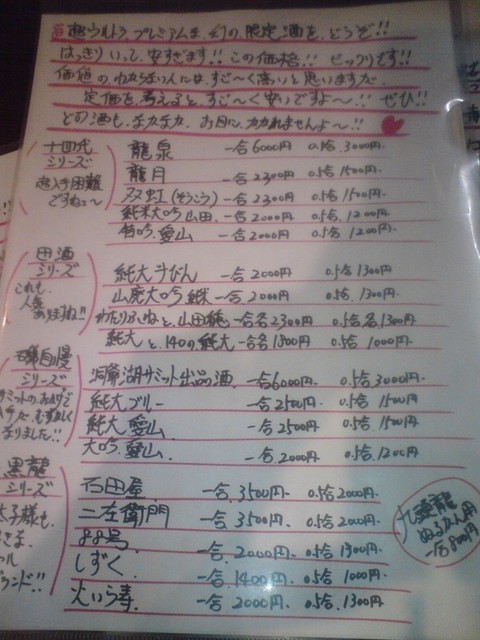 超ウルトラ、プレミアム、幻の限定酒を、どうぞ!!
はっきりいって、安すぎます!! この価格!! ビックリです!!
価値のわからない人には、すご〜く高いと思いますが、
定価を考えると、すご〜く安いですよ〜!! ぜひ!!
どの酒も、なかなか、お目に、かかれませんよ〜!!
十四代
シリーズ
超入手困難
ですね〜
龍泉 一合6000円 0.5合3000円
龍月 一合2300円 0.5合1500円
双虹(そうこう) 一合2300円 0.5合1500円
純米大吟山田 一合2000円 0.5合1200円
吟愛山 一合2000円 0.5合1200円
田酒
シリーズ
これも、
人気
ありますね!!
純大斗びん 一合2000円 0.5合1300円
山廃大吟純米 一合2000円 0.5合1300円
わたりふねと、山田穂 一合各2300円 0.5合各1300円
純大と、140の純大 一合各1800円 0.5合1000円
磯自慢
シリーズ
サミットの
むずかしく
なりました!!
洞爺湖サミット出品酒 一合6000円 0.5合3000円
純大ブルー 一合2500円 0.5合1500円
純大愛山 一合2500円 0.5合1500円
大吟愛山 一合2000円 0.5合1200円
黒龍
シリーズ
太子様も
ランド!!
石田屋 一合3500円 0.5合2000円
二左衛門 一合3500円 0.5合2000円
88号 一合2000円 0.5合1300円
しずく 一合1400円 0.5合1000円
火いら寿 一合2000円 0.5合1300円
九頭龍
ぬるかん用
一合800円